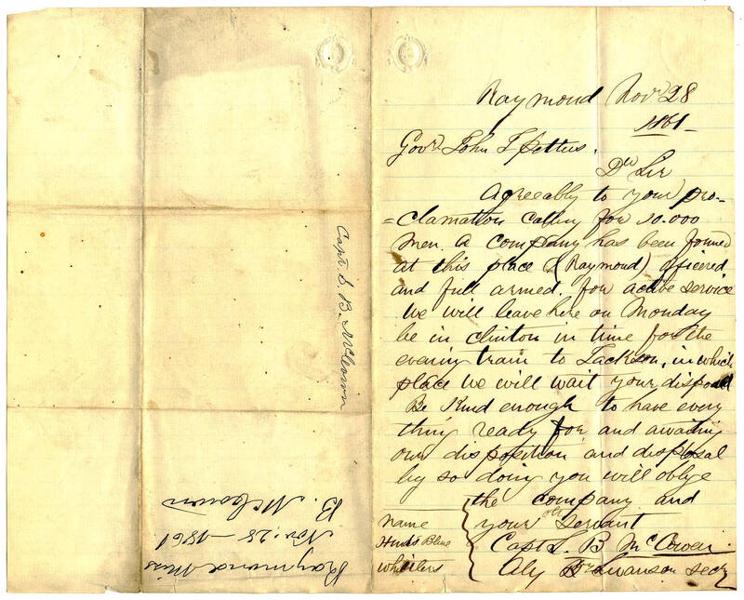 Raymond Novr 28
1861-
Govr John J Pettus.
Dr Sir
Agreeably to your pro-
=clamation calling for 10.000
men. A company has been formed
at this place (Raymond) officered
and full armed. for active service
We will leave here on Monday
be in Clinton in time for the
evening train to Jackson, in which
place we will wait your disposal
Be kind enough to have every
thing ready for and awaiting
our disposition and disposal
by so doing you will oblige
the company and
your obt Servant
Capt S. B McCowen
Secy
name
Hinds Blue
Whistlers
Capt. S. B. McCown
Raymond Miss
Nov. 28 - 1861
B. McCown